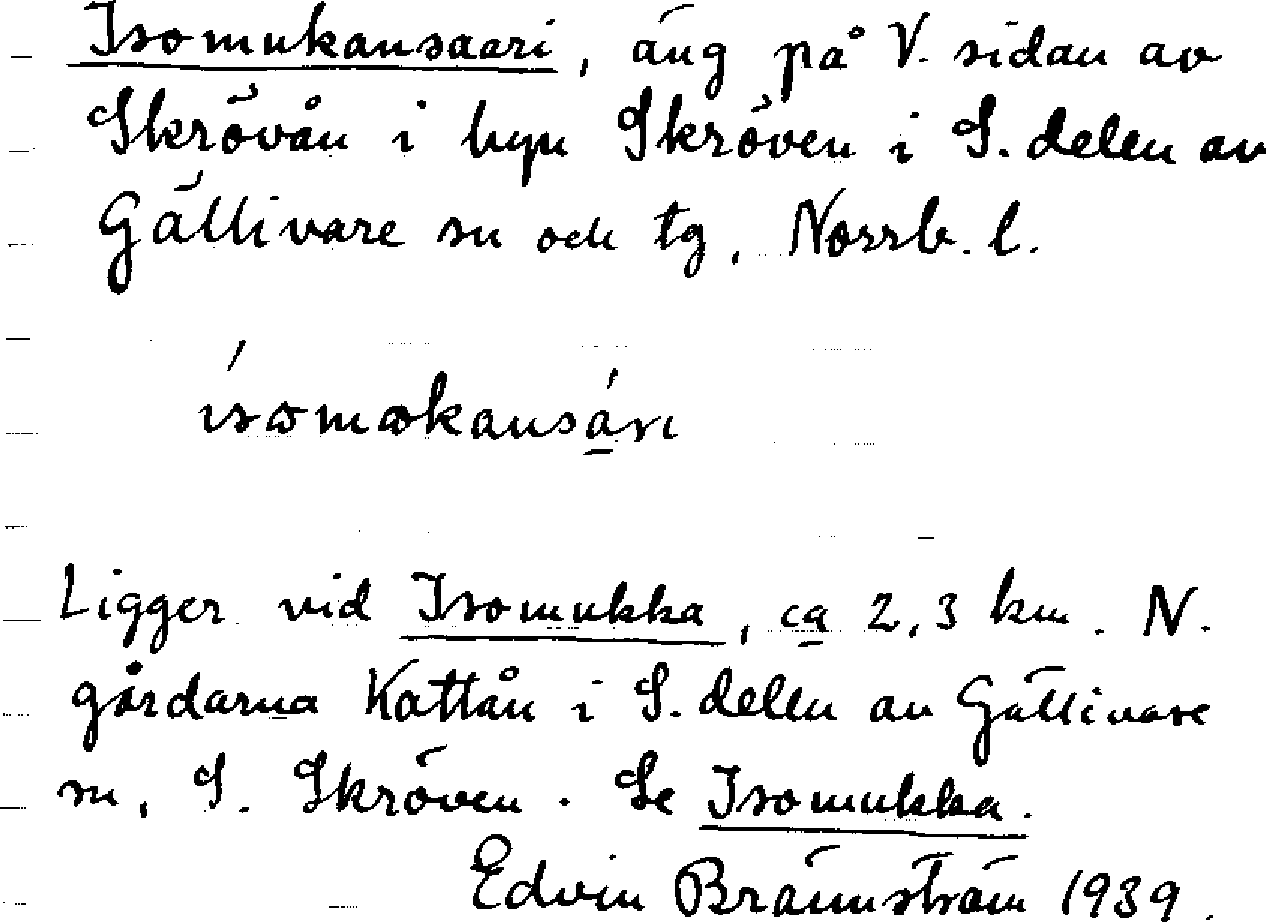 Isomukansaari, äng på V. sidan av
Skrövån i byn Skröven i S. delen av
Gällivare sn och tg, Norrb. l.
Ligger vid Isomukka, ca 2,3 km. N.
gårdarna Kattån i S. delen av Gällivare
sn, S. Skröven. Se Isomukka.
Edvin Brännström 1939.